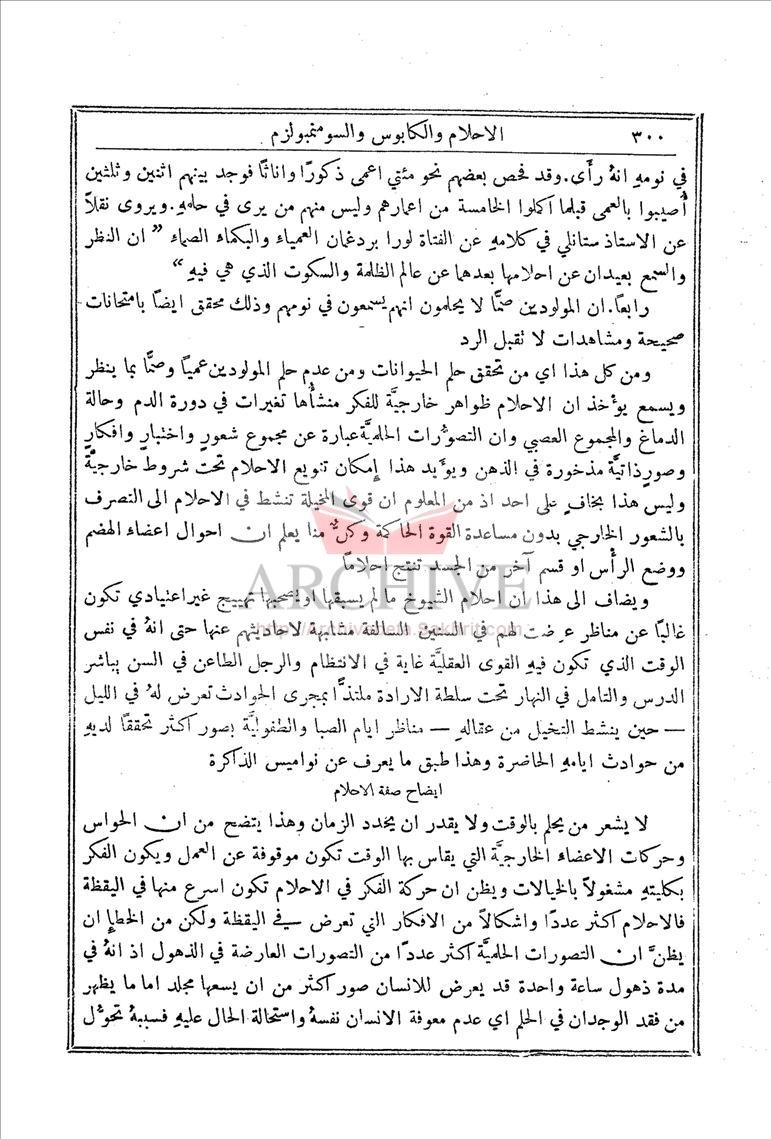 ٣٠٠ الاحلام والكابوس والسومنمبولزم
في نومهِ انهُ رأى. وقد فحص بعضهم نحو مئتي اعمى ذكورًا واناثًا فوجد بينهم اثنين وثلثين
أُصيبوا بالعمى قبلما اكملوا الخامسة من اعمارهم وليس منهم من يرى في حلمهِ. ويروى نقلاً
عن الاستاذ ستانلي في كلامهِ عن الفتاة لورا بردغمان العمياء والبكماء الصماء ” ان النظر
والسمع بعيدان عن احلامها بعدهما عن عالم الظلمة والسكوت الذي هي فيهِ “
رابعًا. ان المولودين صمًّا لا يحلمون انهم يسمعون في نومهم وذلك محقق ايضًا بامتحانات
صحيحة ومشاهدات لا تقبل الرد
ومن كل هذا اي من تحقق حلم الحيوانات ومن عدم حلم المولودين عميًا وصمًّا بما ينظر
ويسمع يؤخذ ان الاحلام ظواهر خارجيَّة للفكر منشأُها تغيرات في دورة الدم وحالة
الدماغ والمجموع العصبي وان التصوُّرات الحلميَّة عبارة عن مجموع شعورٍ واختبارٍ وافكارٍ
وصورٍ ذاتيَّة مذخورة في الذهن ويؤيد هذا إمكان تنويع الاحلام تحت شروط خارجيَّة
وليس هذا بخافٍ على احد اذ من المعلوم ان قوى المخيلة تنشط في الاحلام الى التصرف
بالشعور الخارجي بدون مساعدة القوة الحاكمة وكلٌّ منا يعلم ان احوال اعضاء الهضم
ووضع الرأس او قسم آخر من الجسد تنتج احلامًا
ARCHIVE
ويضاف الى هذا ان احلام الشيوخ ما لم يسبقها او يصحبها تهييج غير اعتيادي تكون
http://Archivebeta.Sakhrit.com
غالبًا عن مناظر عرضت لهم في السنين السالفة مشابهة لاحاديثهم عنها حتى انهُ في نفس
الوقت الذي تكون فيهِ القوى العقليَّة غاية في الانتظام والرجل الطاعن في السن يباشر
الدرس والتامل في النهار تحت سلطة الارادة ملتذًّا بمجرى الحوادث تعرض لهُ في الليل
— حين ينشط التخيل من عقالهِ — مناظر ايام الصبا والطفوليَّة بصور اكثر تحققًا لديهِ
من حوادث ايامهِ الحاضرة وهذا طبق ما يعرف عن نواميس الذاكرة
ايضاح صفة الاحلام
لا يشعر من يحلم بالوقت ولا يقدر ان يحدد الزمان وهذا يتضح من ان الحواس
وحركات الاعضاء الخارجيَّة التي يقاس بها الوقت تكون موقوفة عن العمل ويكون الفكر
بكليتهِ مشغولاً بالخيالات ويظن ان حركة الفكر في الاحلام تكون اسرع منها في اليقظة
فالاحلام اكثر عددًا واشكالاً من الافكار التي تعرض في اليقظة ولكن من الخطإ ان
يظنَّ ان التصورات الحلميَّة اكثر عددًا من التصورات العارضة في الذهول اذ انهُ في
مدة ذهول ساعة واحدة قد يعرض للانسان صور اكثر من ان يسعها مجلد اما ما يظهر
من فقد الوجدان في الحلم اي عدم معوفة الانسان نفسهُ واستحالة الحال عليهِ فسببهُ تحوُّل